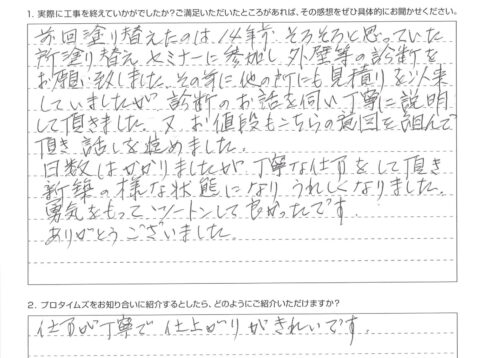 1. 実際に工事を終えていかがでしたか?ご満足いただいたところがあれば、その感想をぜひ具体的にお聞かせください。
前回塗り替えたのは、14年前、そろそろと思っていた
所塗り替えセミナーに参加し外壁等の診断を
お願い致しました。その等に他の所にも見積りを以来
していましたが診断のお話を伺い丁寧に説明
して頂きました。又、お値段もこちらの意図を組んで
頂き話しを進めました。
日数はかかりましたが丁寧な仕事をして頂き
新築の様な状態になりうれしくなりました。
勇気をもってツートンして良かったです。
ありがとうございました。
2. プロタイムズをお知り合いに紹介するとしたら、どのようにご紹介いただけますか?
仕事が丁寧で仕上がりがきれいです。